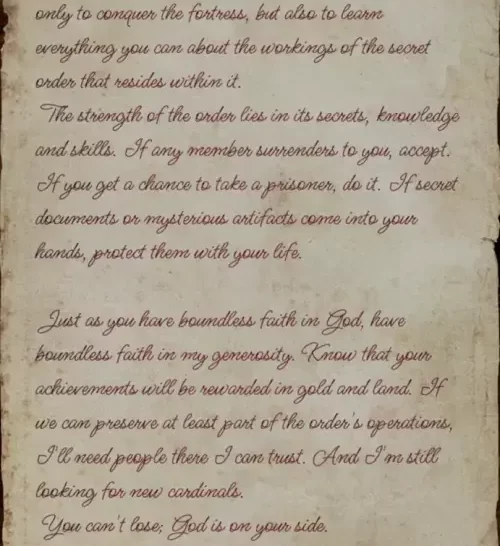 only to conquer the fortress, but also to learn
everything you can about the workings of the secret
order that resides within it.
The strength of the order lies in its secrets, knowledge
and skills. If any member surrenders to you, accept.
If you get a chance to take a prisoner, do it. If secret
documents or mysterious artifacts come into your
hands, protect them with your life.
Just as you have boundless faith in God, have
boundless faith in my generosity. Know that your
achievements will be rewarded in gold and land. If
we can preserve at least part of the order's operations,
I'll need people there I can trust. And I'm still
looking for new cardinals.
You can't lose; God is on your side.